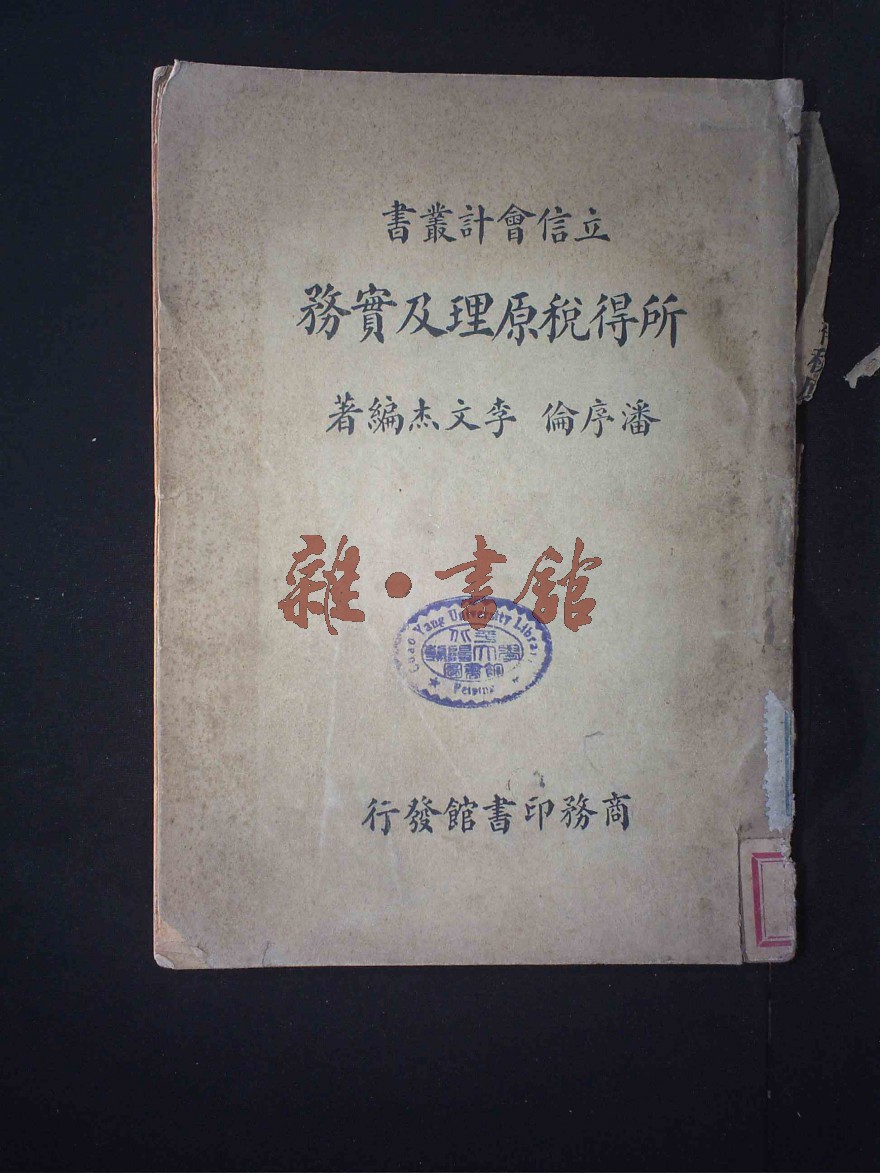 立信會計叢書
所得稅原理及實務
潘序倫 李文杰編著
雜·書館
Yang University Library
圖書館
Peiping
商務印書館發行